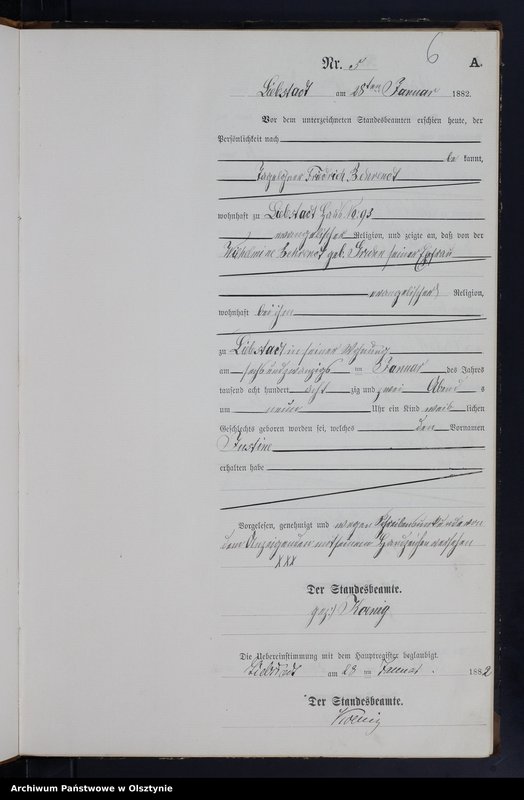 6
Nr. 5 A.
Liebstadt am 28ten Januar 1882.
Vor dem unterzeichneten Standesbeamten erschien heute, der
Persönlichkeit nach
be kannt,
Friedrich Behrendt
wohnhaft zu Liebstadt Haus No. 93
evangelischer Religion, und zeigte an, daß von der
Wilhelmine Behrendt geb. seiner Ehefrau
evangelischer Religion,
wohnhaft bei ihm
zu Liebstadt in seiner Wohnung
am sechsundzwanzigs ten Januar des Jahres
tausend acht hundert acht zig und zwei Abend s
um neun Uhr ein Kind weib lichen
Geschlechts geboren worden sei, welches den Vornamen
Justine
erhalten habe
Vorgelesen, genehmigt und wegen Schreibensunkunde von
dem Anzeigenden mit seinem Handzeichen versehen
XXX
Der Standesbeamte.
gez. Koenig
Die Uebereinstimmung mit dem Hauptregister beglaubigt.
Liebstadt am 28 ten Januar 1882
Der Standesbeamte.
Koenig
Archiwum Państwowe w Olsztynie